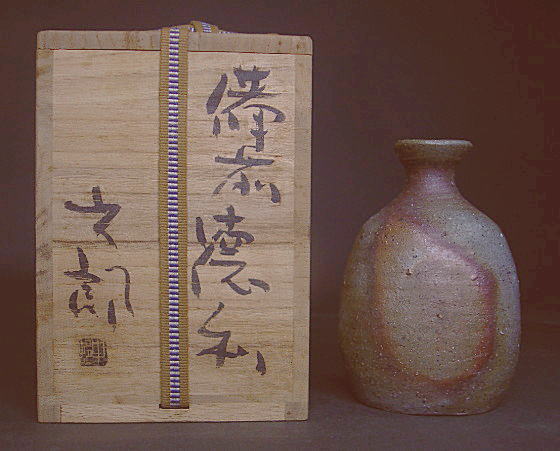 備前徳利
六郎